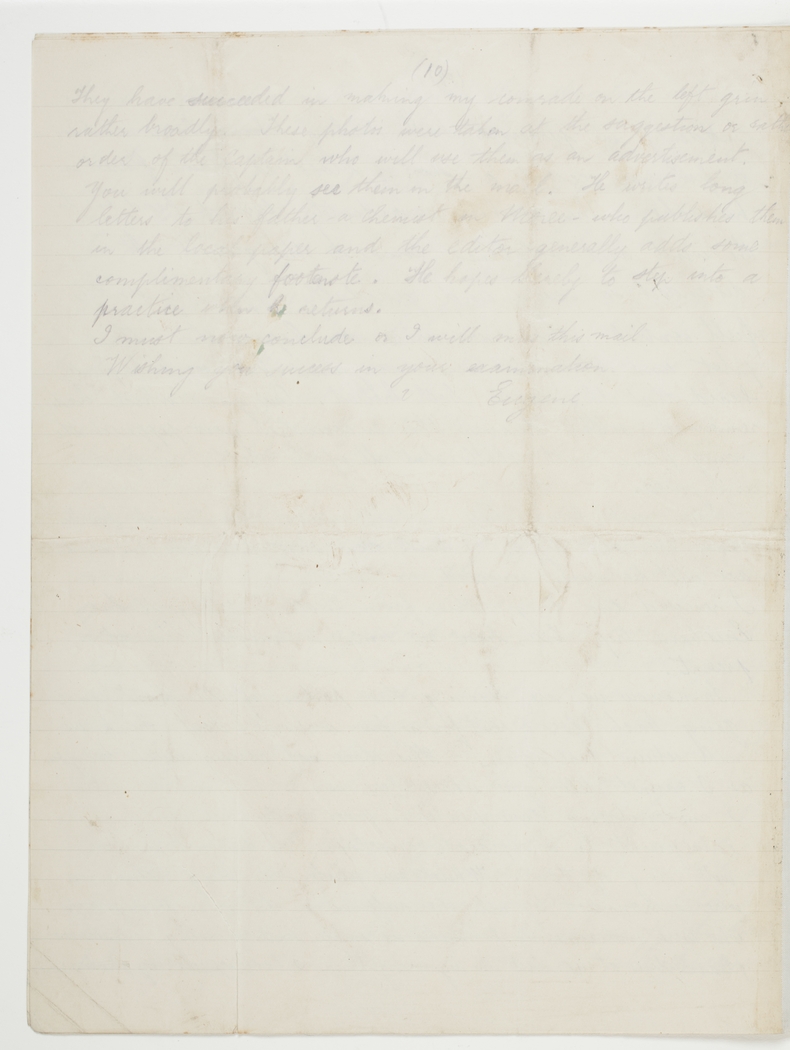 (10)
They have succeeded in making my comrade on the left grin
rather broadly. These photos were taken at the suggestion or
order of the Captain who will use them as an advertisement.
You will probably see them in the mail. He writes long
letters to his father a chemist in Moree - who publishes them
in the local paper and the editor generally adds some
complimentary footnote. He hopes thereby to step into a
practice when he returns.
I must now conclude or I will miss this mail
Wishing you success in your examination
Eugene